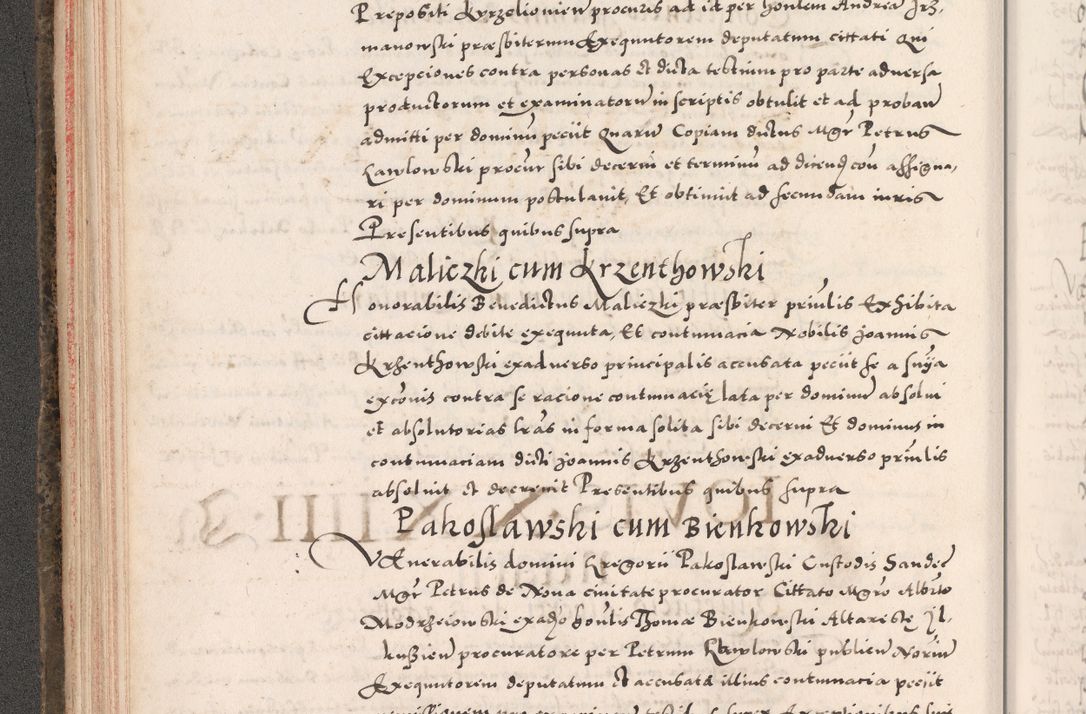 Prepositi Kyrzelionien procuris ad id per honlem Andrea Jrz,
manowski præsbiterum Exequutorem deputatum cittati Qui
Excepciones contra personas et dicta testium pro parte adversa
productorum et examinatorum in scriptis obtulit et ad proban
admitti per dominum peciit Quarum Copiam dictus Mgr Petrus
Kawlowski procur sibi decerni et terminum ad dicend con assigna,
ri per dominum postulavit, Et obtinuit ad secundam iuris
Presentibus quibus supra
Maliczki cum Krzenthowski
Honorabilis Benedictus Maliczki præsbiter prinlis Exhibita
cittacione debite exequuta, Et contumacia Nobilis Joannis
Krzenthowski exadverso principalis accusata peciit se a snia
exconis contra se racione contumacię lata per dominum absolui
et absolutorias lras in forma solita sibi decerni Et dominus in
contumaciam dicti Joannis Krzenthowski exadverso prinlis
absoluit et decreuit Presentibus quibus supra
Pakoslawski cum Bienkowski
Venerabilis domini Gregorii Pakoslawski Custodis Sandec
Mgr Petrus de Nova civitate procurator Cittato Mgro Albrto
Modrzeiowski exadso honlis Thomæ Bienkowski Altarestę Jl,
kussien procuratore per Petrum Kawlowski publicum Norium
Exequutorem deputatum et accusata illius contumacia peciit